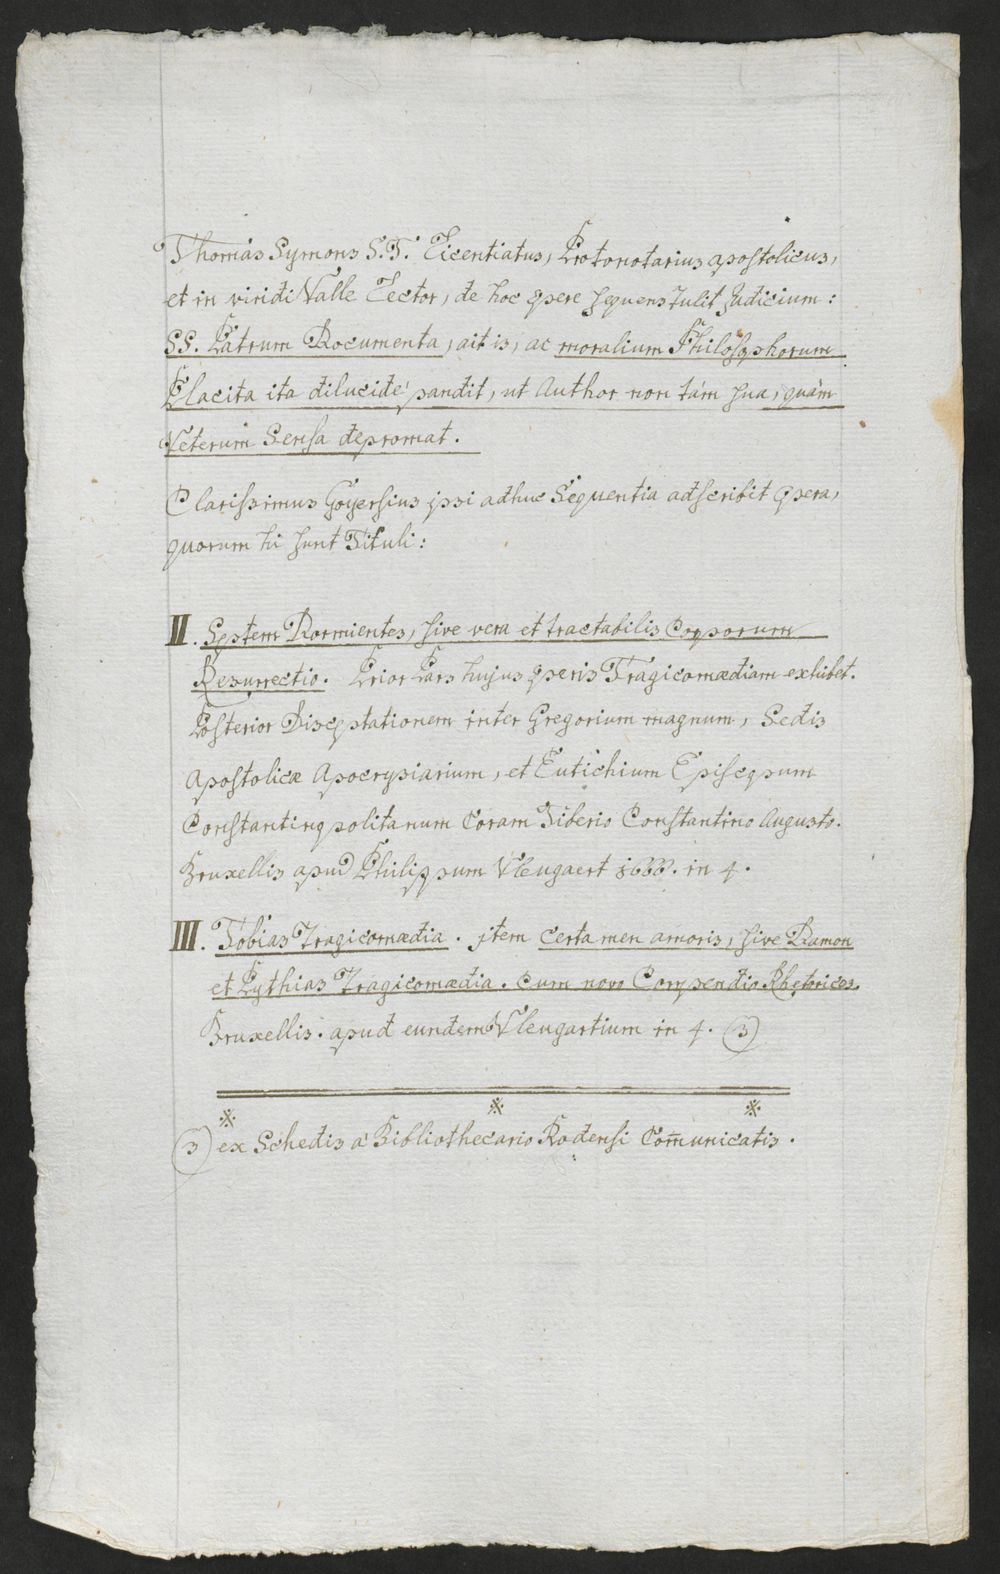 Thomas Symons S. T. Licentiatus, Protonotarius apostolicus,
et in viridi Valle Lector, de hoc opere sequens tulit judicium:
SS. Patrum Documenta, ait is, ac moralium Philosophorum
Placita ita dilucidè pandit, ut Author non tám sua, quám
Veterum Sensa depromat.
Clarissimus Goyersius ipsi adhuc Sequentia adscribit opera,
quorum hi sunt Tituli:
II. Septem Dormientes, sive vera et tractabilis Corporum
Resurrectio. Prior Pars hujus operis Tragicomædiam exhibet.
Posterior Disceptationem inter Gregorium magnum, Sedis
Apostolicæ Apocrysiarium, et Eutichium Episcopum
Constantinopolitanum Coram Tiberio Constantino Augusto.
Bruxellis apud Philippum Vleugaert 1666. in 4.
III. Tobias Tragicomædia. jtem Certamen amoris, sive Damon
et Pythias Tragicomædia. Cum novo Compendio Rhetorices.
Bruxellis. apud eundem Vleugartium in 4. (3)
(3) ex Schedis à Bibliothecario Rodensi Com̄unicatis.